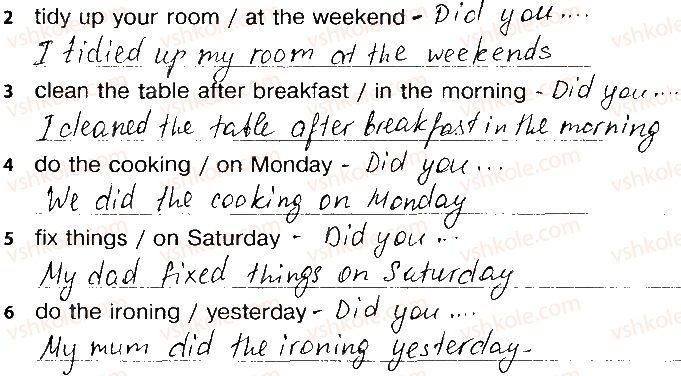 2 tidy up your room / at the weekend - Did you....
I tidied up my room at the weekends
3 clean the table after breakfast / in the morning - Did you....
I cleaned the table after breakfast in the morning
4 do the cooking / on Monday - Did you...
We did the cooking on Monday
5 fix things / on Saturday - Did you ...
My dad fixed things on Saturday
6 do the ironing / yesterday - Did you ....
My mum did the ironing yesterday